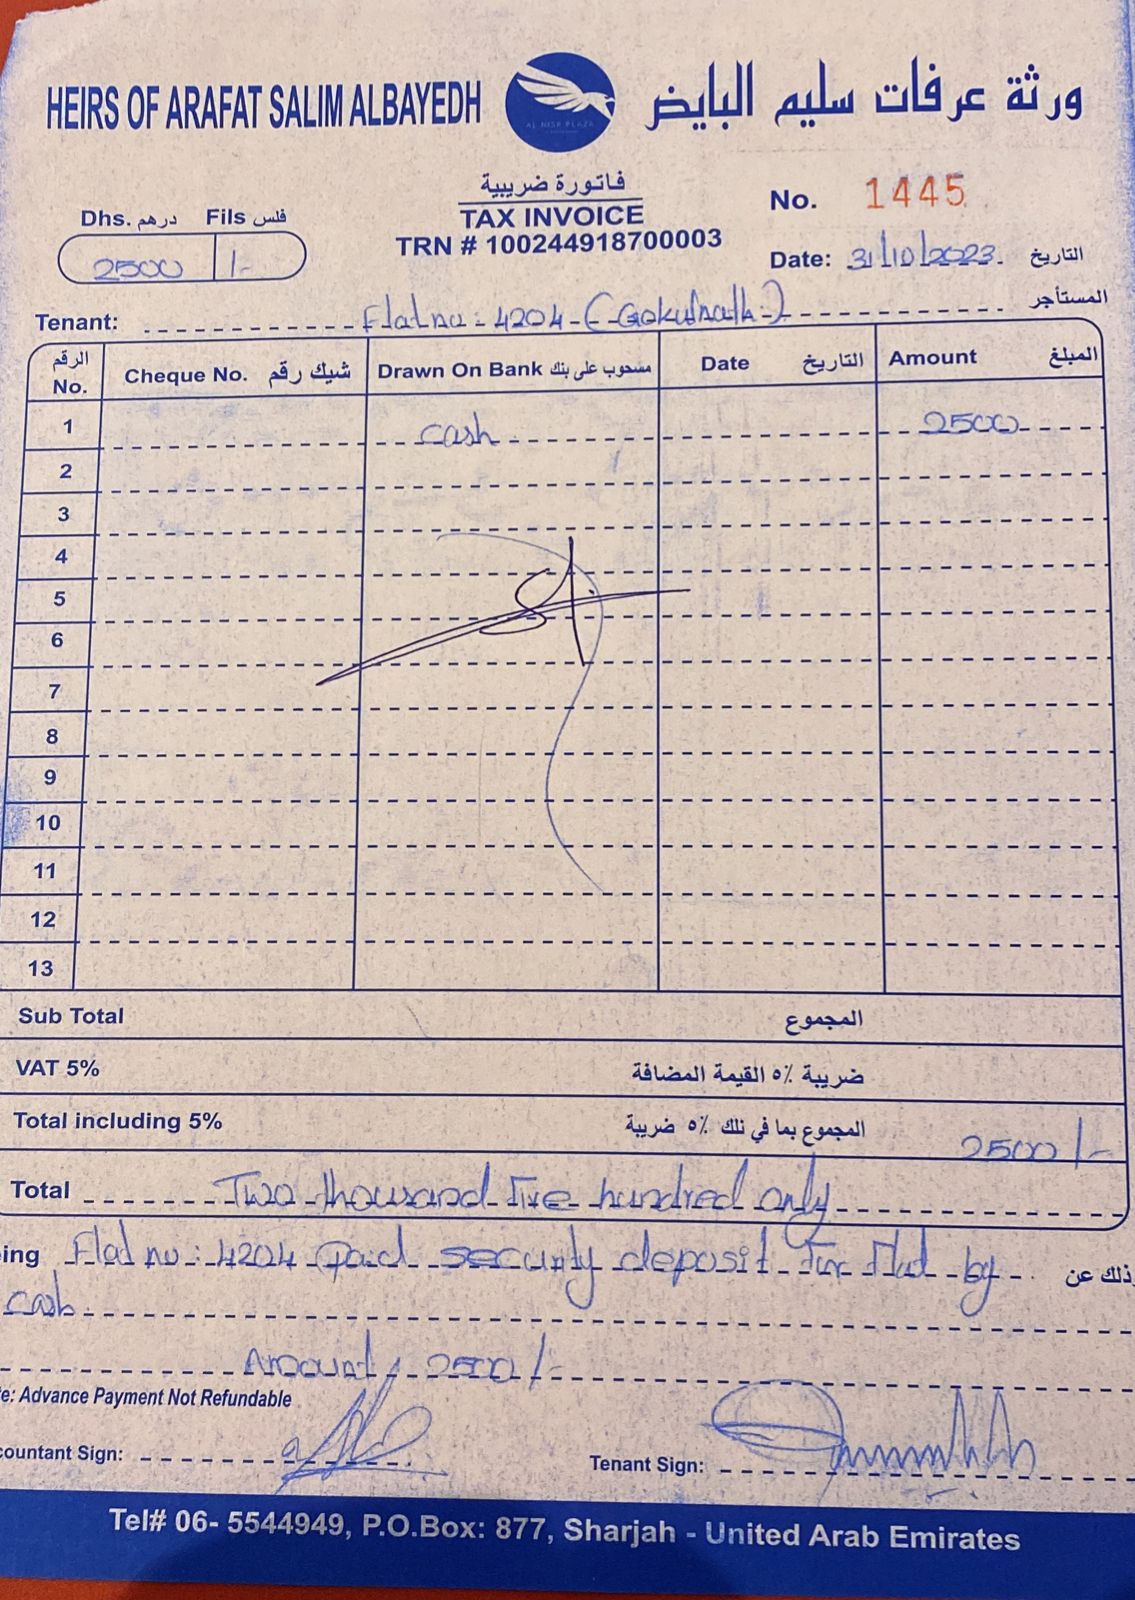 HEIRS OF ARAFAT SALIM ALBAYEDH
ورثة عرفات سليم البايض
AL NISR PLAZA
فاتورة ضريبية
TAX INVOICE
TRN # 100244918700003
No. 1445
Dhs. درهم Fils فلس
2500 /-
Date: 31/10/2023 التاريخ
Tenant: Flat no: 4204 (Gokulnath) المستأجر
الرقم No. Cheque No. شيك رقم Drawn On Bank مسحوب على بنك Date التاريخ Amount المبلغ
1 cash 2500
2
3
4
5
6
7
8
9
10
11
12
13
Sub Total المجموع
VAT 5% ضريبة ٥٪ القيمة المضافة
Total including 5% المجموع بما في ذلك ٥٪ ضريبة 2500/-
Total Two thousand Five hundred only
ing Flat no: 4204 Paid security deposit For Flat by ذلك عن
cash
Amount 2500/-
e: Advance Payment Not Refundable
countant Sign:
Tenant Sign:
Tel# 06- 5544949, P.O.Box: 877, Sharjah - United Arab Emirates